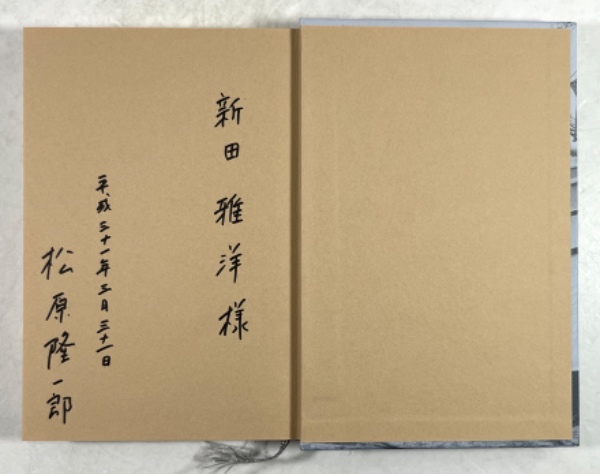 新田 雅洋 様
平成三十一年三月三十一日
松原隆一郎